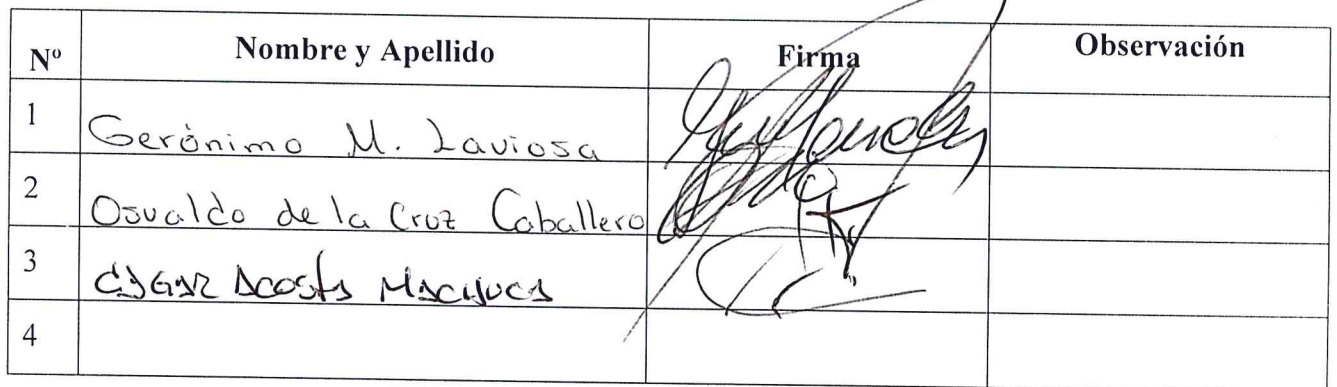 Nº Nombre y Apellido Firma Observación
1 Gerónimo M. Laviosa
2 Osvaldo de la Cruz Caballero
3 EDGAR ACOSTA MACHUCA
4